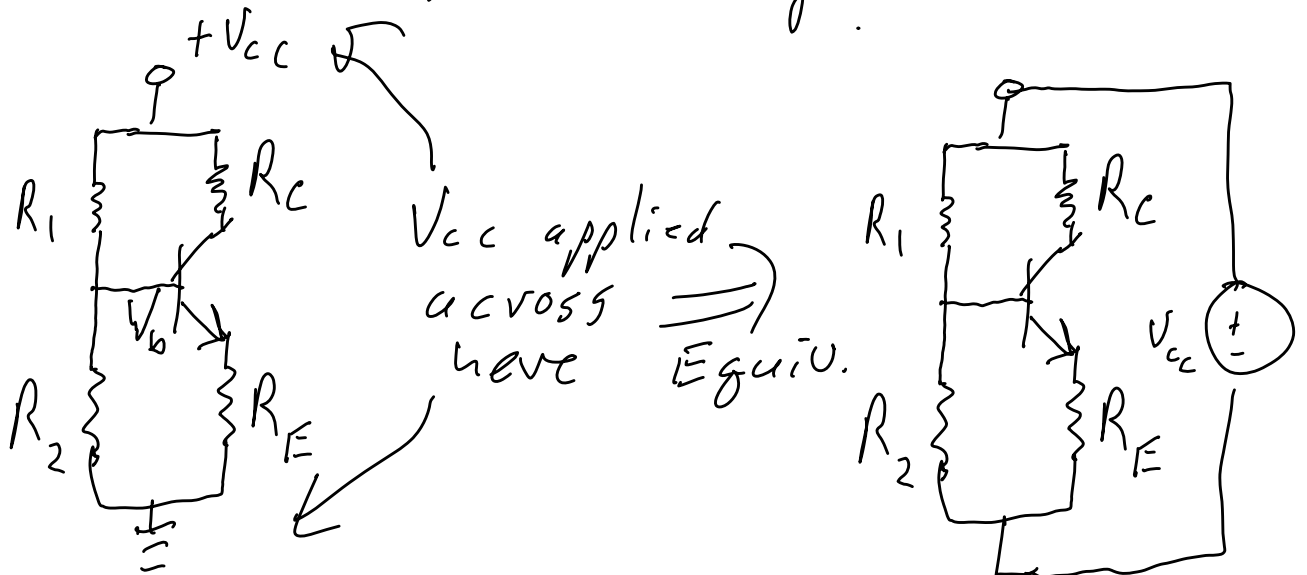 +Vcc
R1
RC
Vb
R2
RE
Vcc applied
across
here
Equiv.
R1
RC
Vcc
+
-
R2
RE